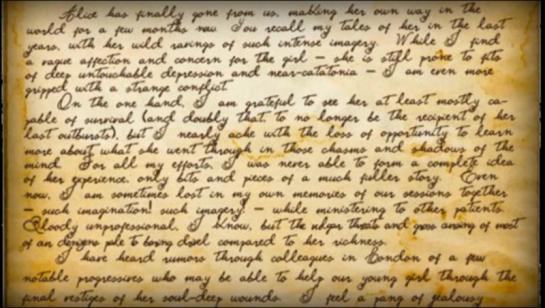 Alice has finally gone from us, making her own way in the
world for a few months now. You recall my tales of her in the last
years, with her wild ravings of such intense imagery. While I find
a vague affection and concern for the girl — she is still prone to fits
of deep untouchable depression and near-catatonia — I am even more
gripped with a strange conflict.
On the one hand, I am grateful to see her at least mostly ca-
pable of survival (and doubly that, to no longer be the recipient of her
last outbursts), but I nearly ache with the loss of opportunity to learn
more about what she went through in those chasms and shadows of the
mind. For all my efforts, I was never able to form a complete idea
of her experience, only bits and pieces of a much fuller story. Even
now, I am sometimes lost in my own memories of our sessions together
— such imagination! such imagery! — while ministering to other patients.
Bloody unprofessional, I know, but the vulgar threats and gross of most
of an pale to boring compared to her richness.
I have heard rumors through colleagues in London of a few
notable progressives who may be able to help our young girl through the
final vestiges of her soul-deep wounds. I feel a pang of jealousy